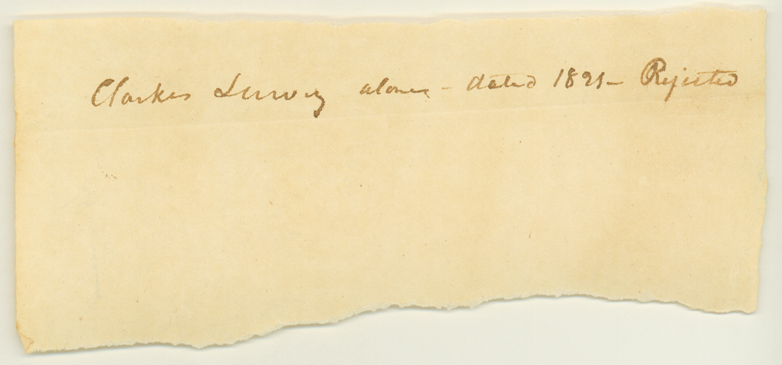 Clarkes Survey alone - dated 1821 - Rejected